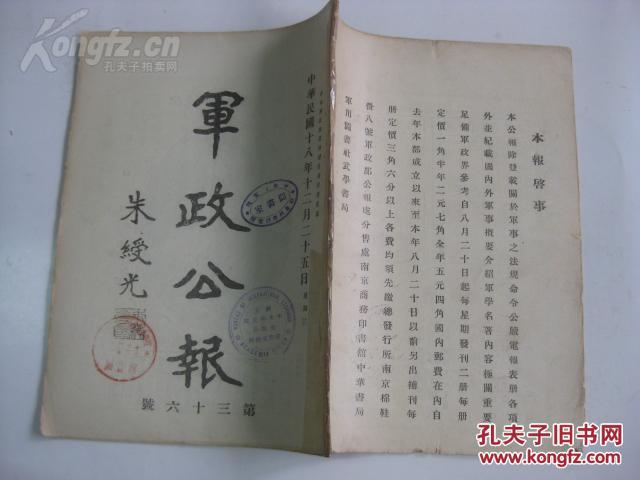 Kongfz.com
孔夫子拍卖网
中華民國十八年十二月二十五日
軍政公報
朱綬光
第三十六號
本報啓事
本公報除登載關於軍事之法規命令公牘電報表册各項
外並紀載國內外軍事概要介紹軍學名著內容極關重要
足備軍政界參考自八月二十日起每星期發刊二册每册
定價一角半年二元七角全年五元四角國內郵費在內自
去年本部成立以來至本年八月二十日以前另出補刊每
册定價三角六分以上各費均須先繳總發行所南京棉鞋
營八號軍政部公報處分售處南京商務印書館中華書局
軍用圖書社武學書局
孔夫子旧书网